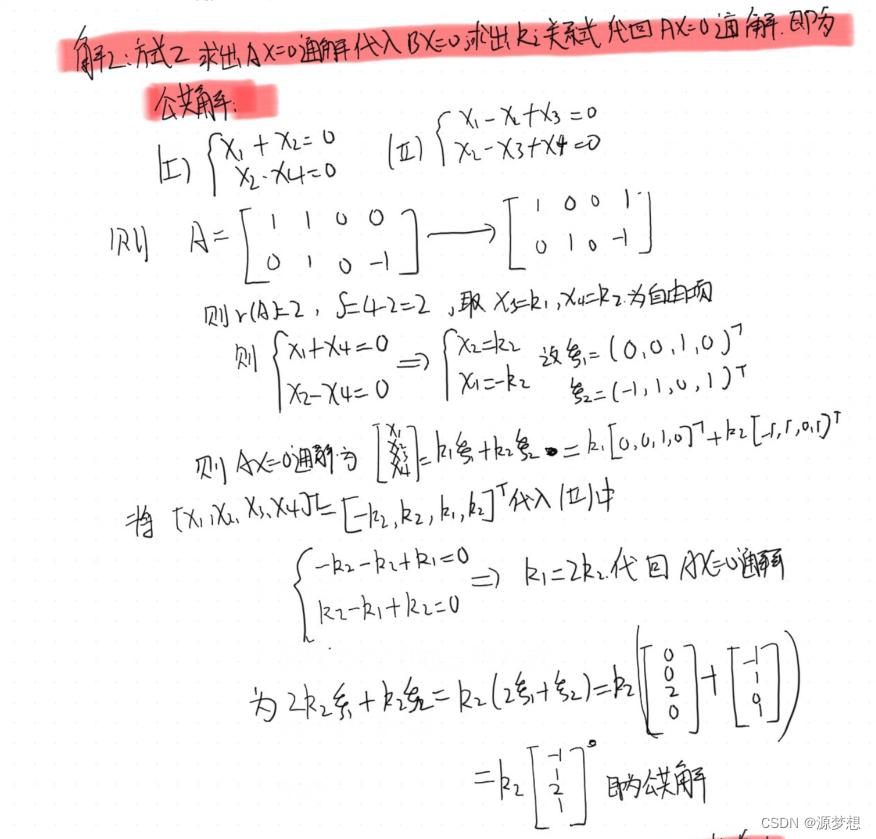 解2:方式2 求出AX=0通解代入BX=0,求出ki关系式代回AX=0通解.即为
公共解:
(I) { x1+x2=0 x2-x4=0 (II) { x1-x2+x3=0 x2-x3+x4=0
则 A= [ 1 1 0 0 0 1 0 -1 ] → [ 1 0 0 1 0 1 0 -1 ]
则r(A)=2, S=4-2=2, 取 x3=k1, x4=k2.为自由项
则 { x1+x4=0 x2-x4=0 ⇒ { x2=k2 x1=-k2 故ξ1=(0,0,1,0)ᵀ ξ2=(-1,1,0,1)ᵀ
则AX=0通解为 [ x1 x2 x3 x4 ] =k1ξ1+k2ξ2 =k1[0,0,1,0]ᵀ+k2[-1,1,0,1]ᵀ
将 [x1,x2,x3,x4]ᵀ=[-k2,k2,k1,k2]ᵀ代入(II)中
{ -k2-k2+k1=0 k2-k1+k2=0 ⇒ k1=2k2.代回AX=0通解
为 2k2ξ1+k2ξ2=k2(2ξ1+ξ2)=k2( [ 0 0 2 0 ] + [ -1 1 0 1 ] )
=k2 [ -1 1 2 1 ] 即为公共解
CSDN @源梦想